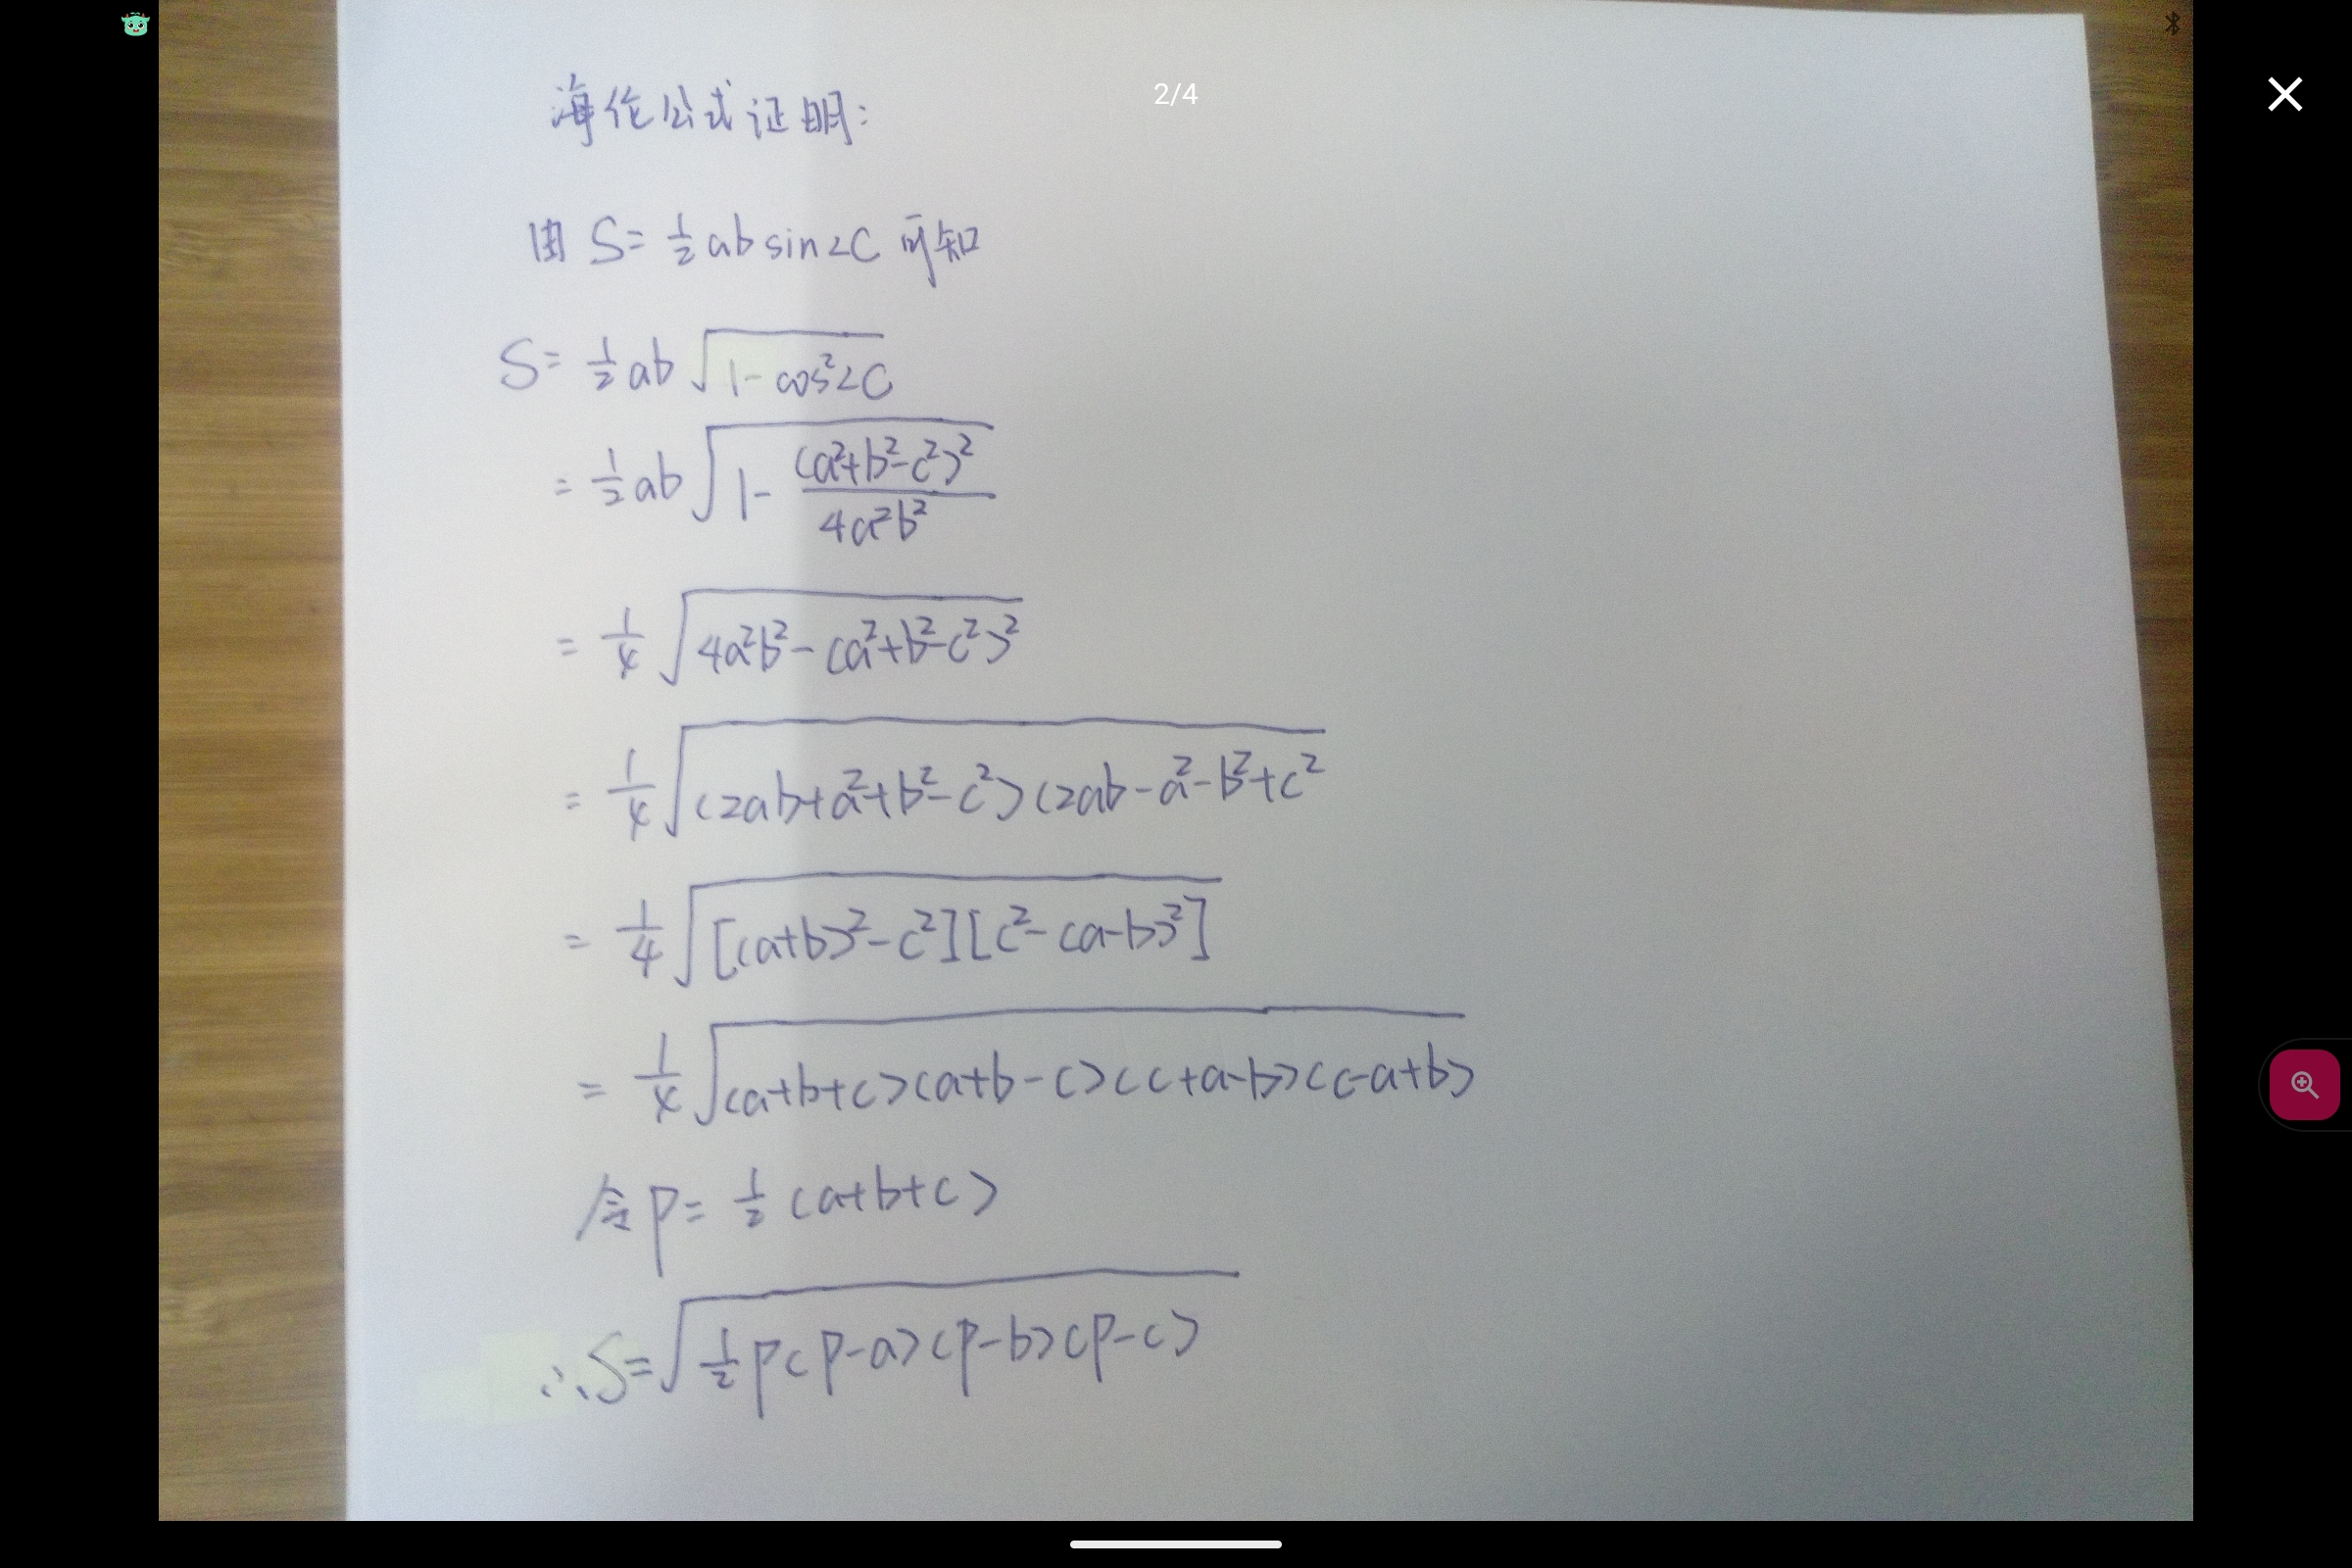 2/4
海伦公式证明:
由 S= 1/2 ab sin∠C 可知
S= 1/2 ab √(1-cos²∠C)
= 1/2 ab √(1- (a²+b²-c²)²/4a²b²)
= 1/4 √(4a²b²-(a²+b²-c²)²)
= 1/4 √((2ab+a²+b²-c²)(2ab-a²-b²+c²
= 1/4 √([(a+b)²-c²][c²-(a-b)²])
= 1/4 √((a+b+c)(a+b-c)(c+a-b)(c-a+b))
令 P= 1/2 (a+b+c)
∴S=√(1/2 P(P-a)(P-b)(P-c))